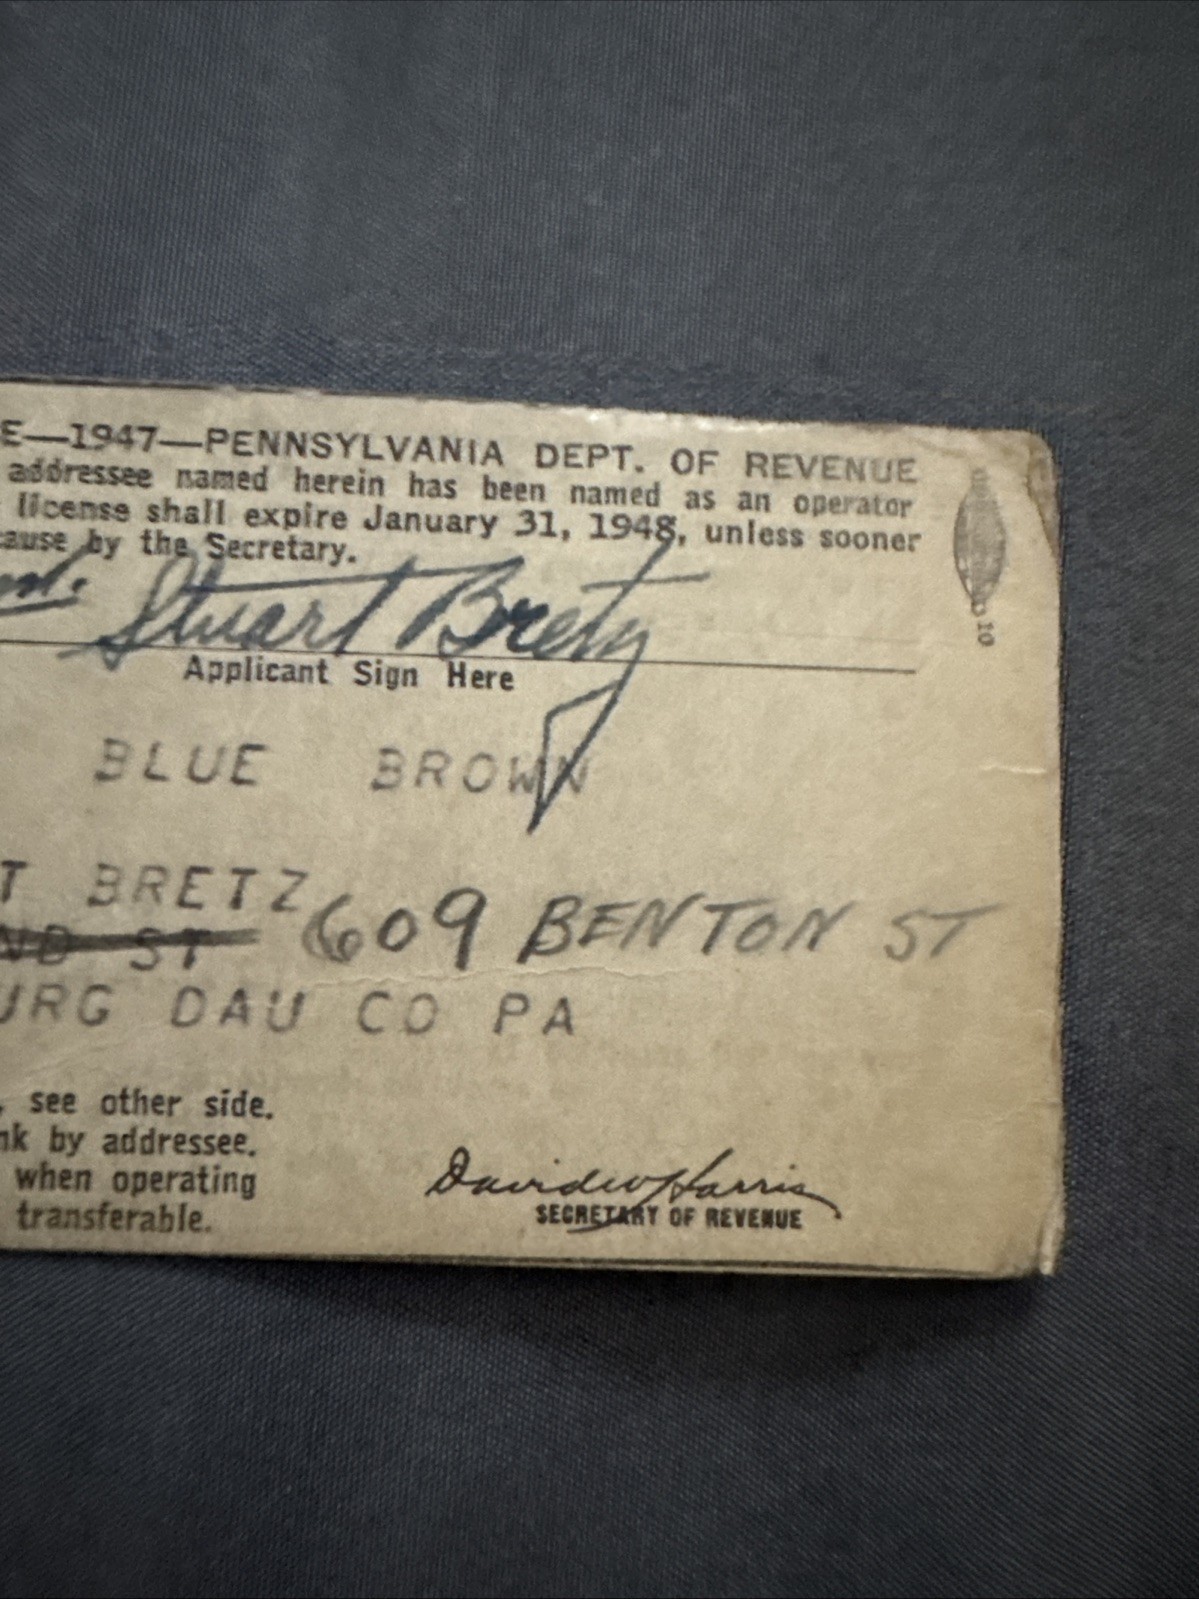 E—1947—PENNSYLVANIA DEPT. OF REVENUE
addressee named herein has been named as an operator
license shall expire January 31, 1948, unless sooner
cause by the Secretary.
Stuart Bretz
Applicant Sign Here
BLUE BROWN
T BRETZ
ND ST 609 BENTON ST
URG DAU CO PA
see other side.
nk by addressee.
when operating
transferable.
David W Harris
SECRETARY OF REVENUE
10